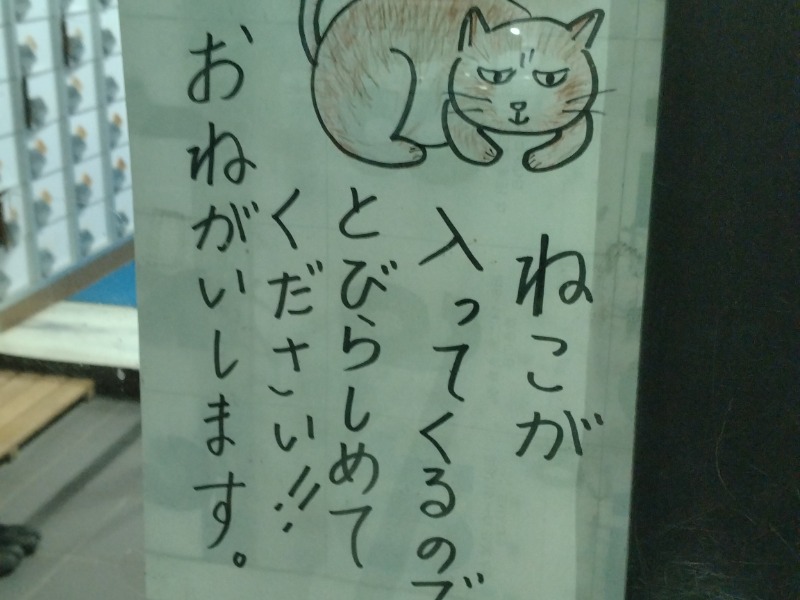 ねこが
入ってくるので
とびらしめて
ください!!
おねがいします。